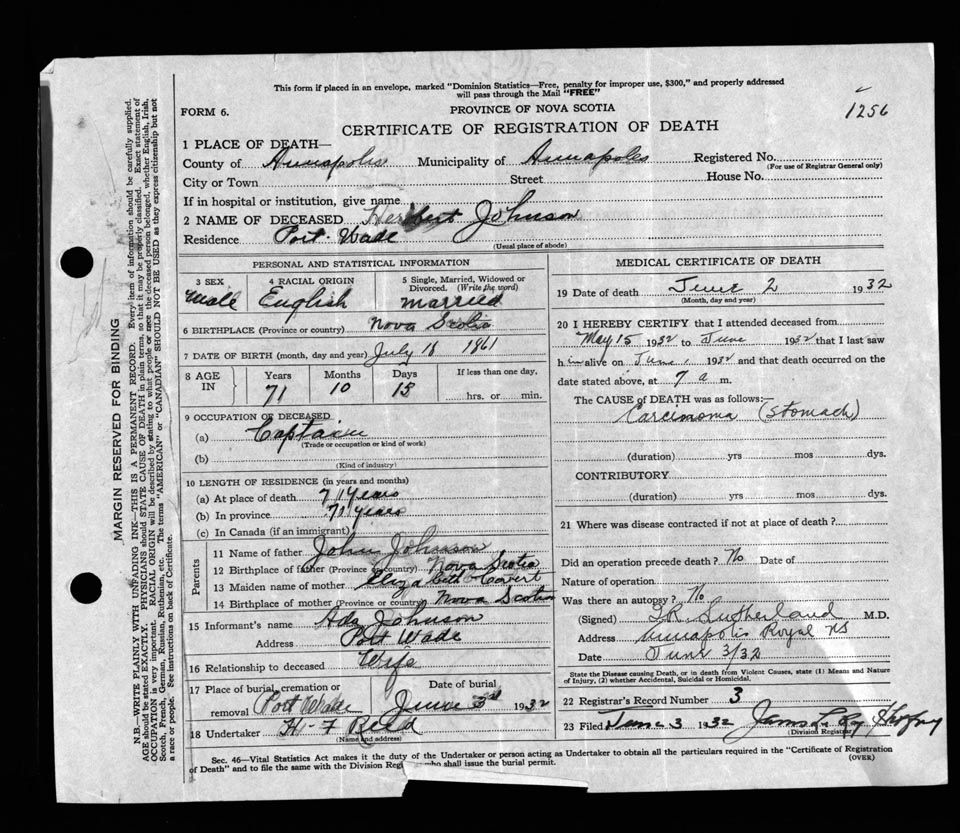 This form if placed in an envelope, marked "Dominion Statistics—Free, penalty for improper use, $300," and properly addressed
will pass through the Mail "FREE"
1256
FORM 6.
PROVINCE OF NOVA SCOTIA
CERTIFICATE OF REGISTRATION OF DEATH
1 PLACE OF DEATH—
County of Annapolis Municipality of Annapolis Registered No.
(For use of Registrar General only)
City or Town Street House No.
If in hospital or institution, give name
2 NAME OF DECEASED Herbert Johnson
Residence Port Wade
(Usual place of abode)
PERSONAL AND STATISTICAL INFORMATION
3 SEX 4 RACIAL ORIGIN 5 Single, Married, Widowed or
Divorced. (Write the word)
Male English married
6 BIRTHPLACE (Province or country) Nova Scotia
7 DATE OF BIRTH (month, day and year) July 18 1861
8 AGE IN Years Months Days If less than one day,
71 10 15 hrs. or min.
9 OCCUPATION OF DECEASED
(a) Captain
(Trade or occupation or kind of work)
(b)
(Kind of industry)
10 LENGTH OF RESIDENCE (in years and months)
(a) At place of death 71 years
(b) In province 71 years
(c) In Canada (if an immigrant)
Parents
11 Name of father John Johnson
12 Birthplace of father (Province or country) Nova Scotia
13 Maiden name of mother Elizabeth Covert
14 Birthplace of mother (Province or country) Nova Scotia
15 Informant's name Ada Johnson
Address Port Wade
16 Relationship to deceased Wife
17 Place of burial, cremation or Date of burial
removal Port Wade June 3rd 1932
18 Undertaker H. F Reed
(Name and address)
MEDICAL CERTIFICATE OF DEATH
19 Date of death June 2 1932
(Month, day and year)
20 I HEREBY CERTIFY that I attended deceased from
May 15 1932 to June 1932 that I last saw
him alive on June 1 1932 and that death occurred on the
date stated above, at 7 a m.
The CAUSE of DEATH was as follows:—
Carcinoma (Stomach)
(duration) yrs mos dys.
CONTRIBUTORY
(duration) yrs mos dys.
21 Where was disease contracted if not at place of death?
Did an operation precede death? No Date of
Nature of operation
Was there an autopsy? No
(Signed) Sutherland M.D.
Address Annapolis Royal NS
Date June 3/32
State the Disease causing Death, or in death from Violent Causes, state (1) Means and Nature
of Injury, (2) whether Accidental, Suicidal or Homicidal.
22 Registrar's Record Number 3
23 Filed June 3 1932
(Division Registrar)
Sec. 46—Vital Statistics Act makes it the duty of the Undertaker or person acting as Undertaker to obtain all the particulars required in the "Certificate of Registration
of Death" and to file the same with the Division who shall issue the burial permit.
(OVER)
MARGIN RESERVED FOR BINDING
N.B.—WRITE PLAINLY WITH UNFADING INK—THIS IS A PERMANENT RECORD. Every item of information should be carefully supplied.
AGE should be stated EXACTLY. PHYSICIANS should STATE CAUSE OF DEATH in plain terms, so that it may be properly classified. Exact statement of
OCCUPATION is very important. RACIAL ORIGIN will be described by stating to what people or race the deceased person belonged, whether English, Irish,
Scotch, French, German, Russian, Ruthenian, etc. The terms "AMERICAN" or "CANADIAN" SHOULD NOT BE USED as they express citizenship but not
a race or people. See instructions on back of Certificate.